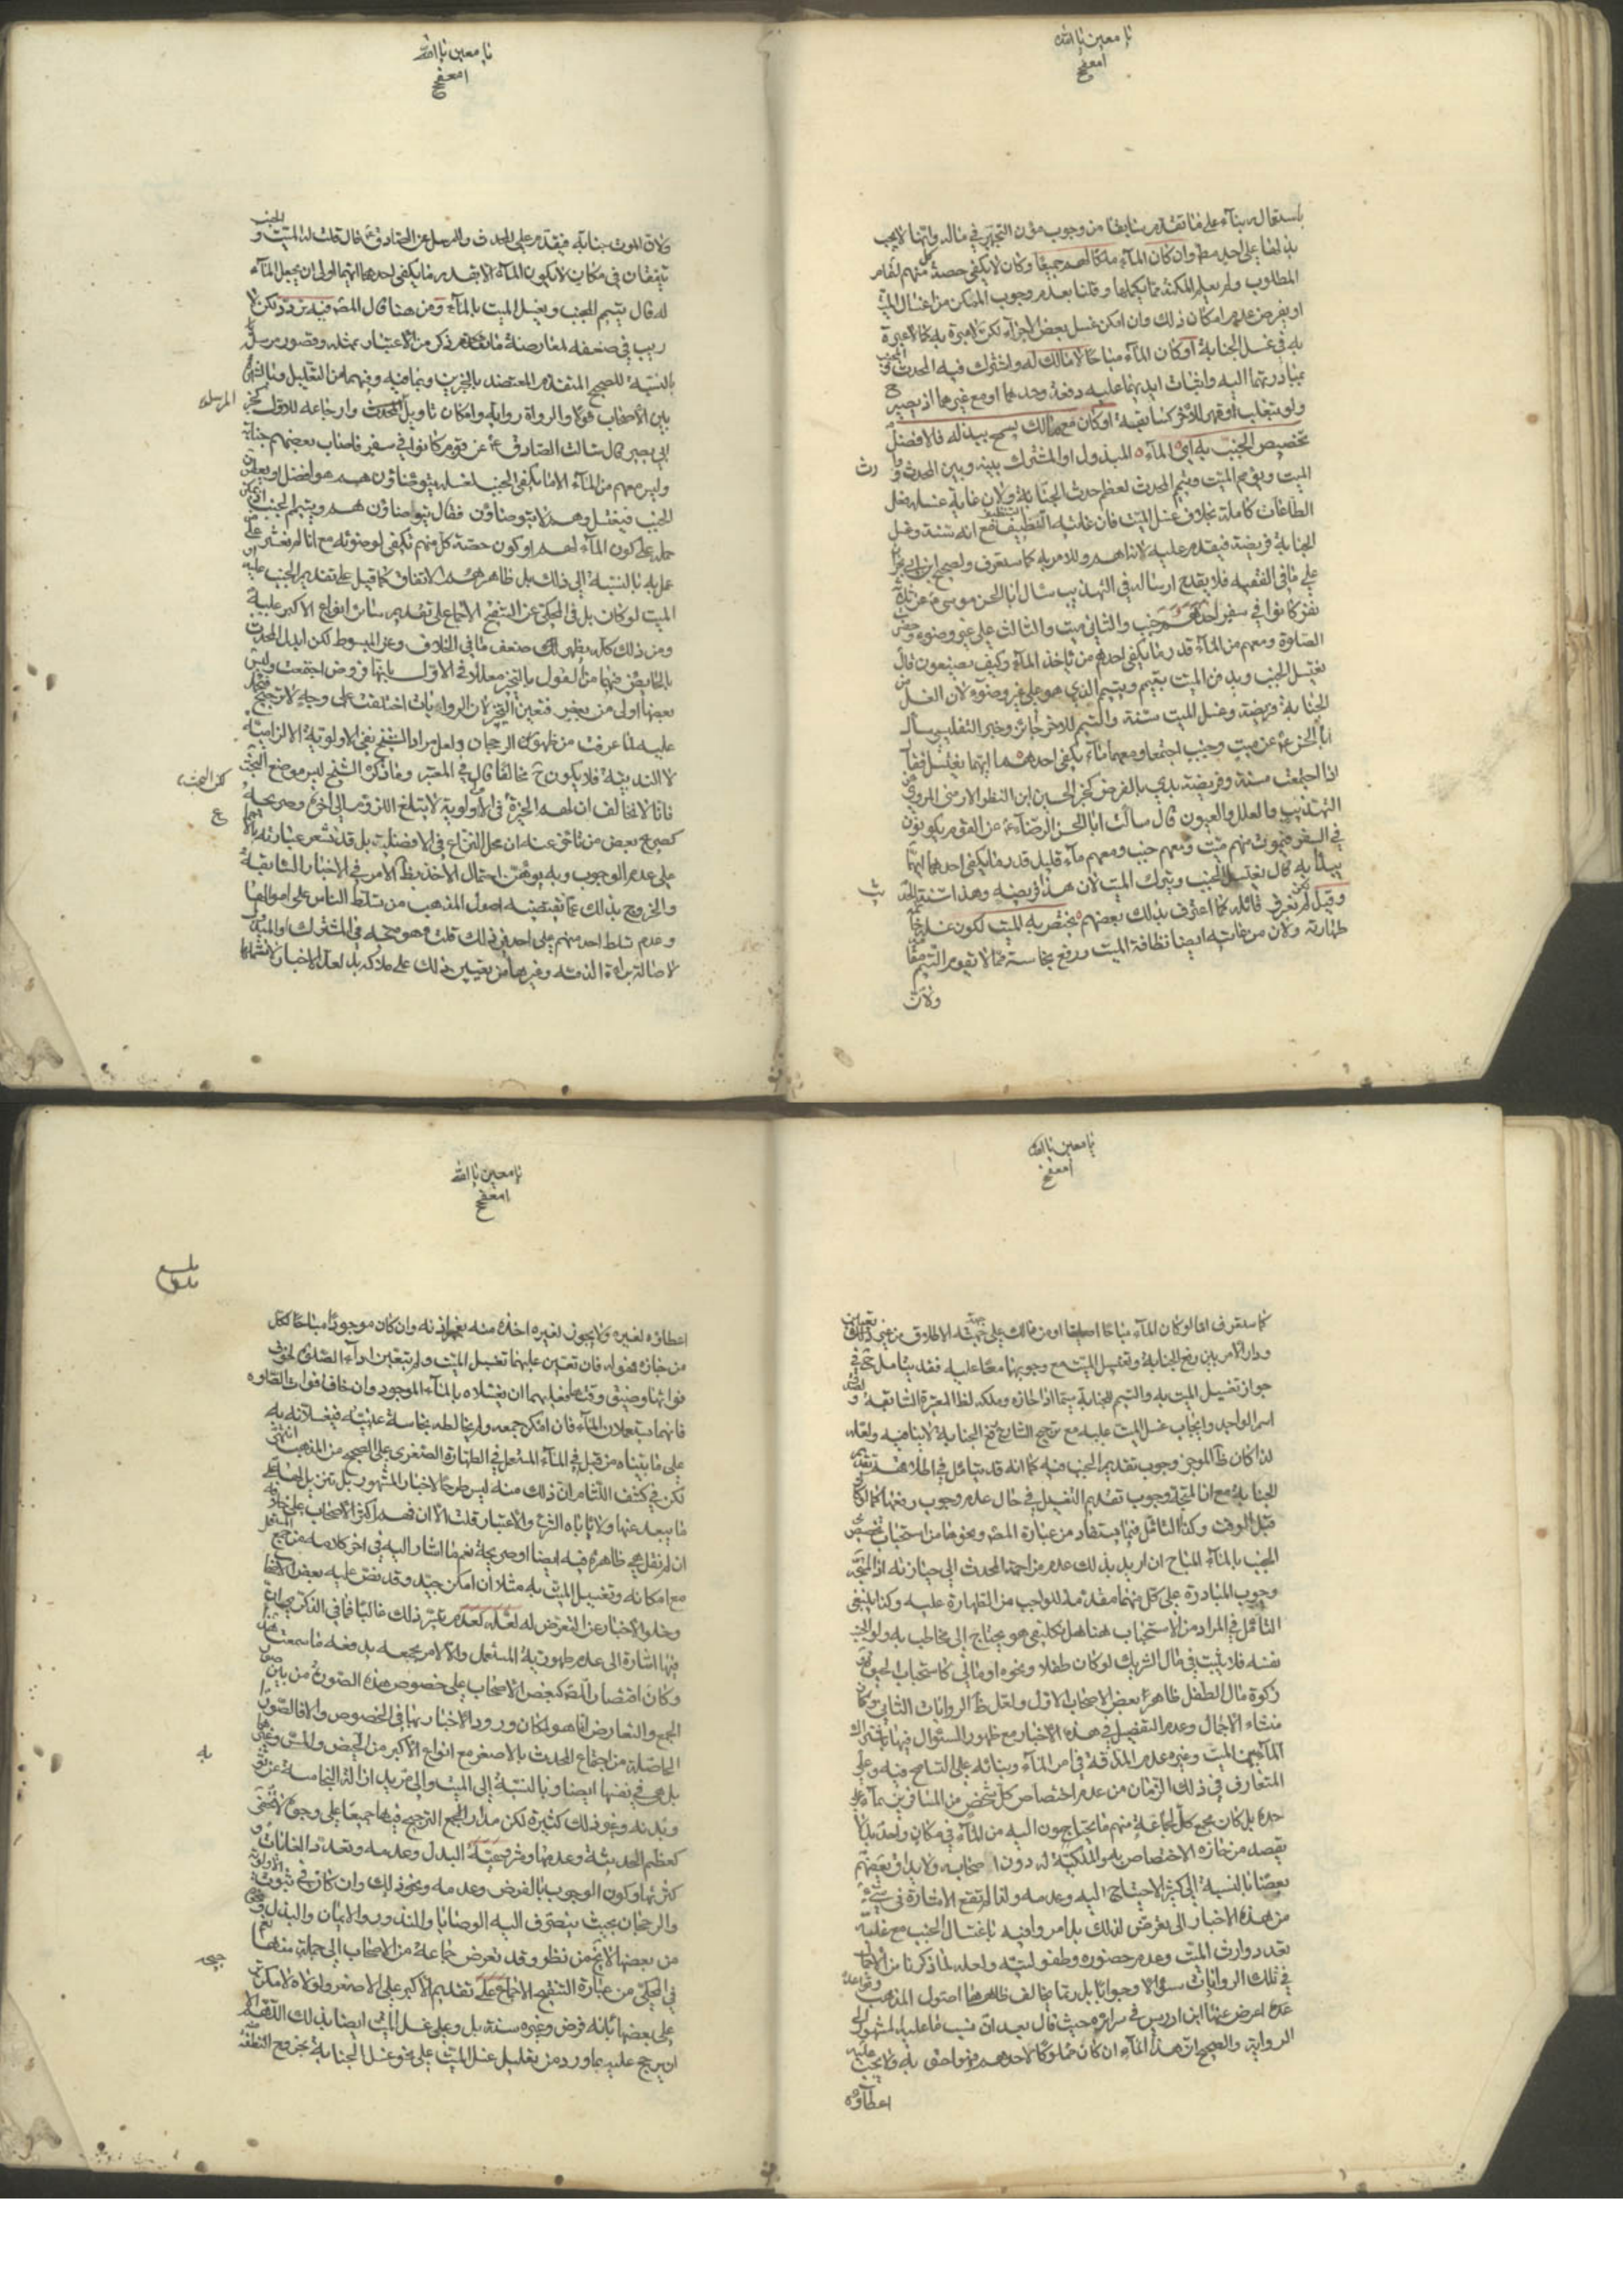 يا معين يا الله
باستعماله بناء على ما تقدم سابقا من وجوب مؤن التجهيز في ماله وانها لا يجب
بذلها على احد مط وان كان الماء ملكا لهم جميعا وكان لا يكفي حصة كل منهم لتمام
المطلوب ولم يعلم المكنة مما يكملها وقلنا بعدم وجوب الممكن من اغسال الميت
او يفرض عدم امكان ذلك وان امكن غسل بعض الاجزاء لكن لا عبرة به كما لا عبرة
به في غسل الجنابة او كان الماء مباحا لا مالك له ولو اشترك فيه المحدث والجنب
بمبادرتهما اليه واثبات ايديهما عليه دفعة وحدهما او مع غيرهما اذ يصير ح
ولو بتغلب او قهر للاخر كسابقه او كان مع مالك يسمح ببذله فالافضل
تخصيص الجنب به اي الماء المبذول او المشترك بينه وبين المحدث و
الميت ويؤمم الميت ويتيمم المحدث لعظم حدث الجنابة ولان غاية غسله فعل
الطاعات كاملة بخلاف غسل الميت فان غايته التنظيف مع انه سنة وغسل
الجنابة فريضة فيقدم عليه لانه اهم وللامر به كما ستعرف ولصحيح ابن ابي نجران
على ما في الفقيه فلا يقدح ارساله في التهذيب سأل ابا الحسن موسى عن ثلاثة
نفر كانوا في سفر احدهم جنب والثاني ميت والثالث على غير وضوء وحضرت
الصلوة ومعهم من الماء قدر ما يكفي احدهم من ياخذ الماء وكيف يصنعون قال
يغتسل الجنب ويدفن الميت بتيمم ويتيمم الذي هو على غير وضوء لان الغسل من
الجنابة فريضة وغسل الميت سنة والتيمم للاخر جائز وخبر التفليسي سأله
ابا الحسن ع عن ميت وجنب اجتمعا ومعهما ماء يكفي احدهما ايهما يغتسل فقال
اذا اجتمعت سنة وفريضة بدي بالفرض كخبر الحسين ابن النظر الارمني المروي في
التهذيب والعلل والعيون قال سألت ابا الحسن الرضا ع عن القوم يكونون
في السفر فيموت منهم ميت ومعهم جنب ومعهم ماء قليل قدر ما يكفي احدهما ايهما
يبدأ به قال يغتسل الجنب ويترك الميت لان هذا فريضة وهذا سنة
وقيل لم نعرف قائله كما اعترف بذلك بعضهم يختص به الميت لكون غسله خاتمة
طهارته ولان من غايته ايضا نظافة الميت ورفع نجاسته مما لا تقوم التيمم مقامه
ولان
يا معين يا الله
ولان الموت جنابة فيقدم على المحدث وللمرسل عن الصادق ع قال قلت له الميت والجنب
يتفقان في مكان لا يكون الماء الا بقدر ما يكفي احدهما ايهما اولى ان يجعل الماء
له قال يتيمم الجنب ويغسل الميت بالماء ومن هنا قال المص فيه تردد لكن لا
ريب في ضعفه لمعارضة ما تقدم ذكر من الاعتبار بمثله وقصور مرسل
بالنسبة للصحيح المتقدم المعتضد بالخبرين وبما فيه وفيهما من التعليل وبالشهرة
بين الاصحاب فتوى والرواة رواية وامكان تاويل المحدث وارجاعه للاول كخبر
ابي بصير قال سألت الصادق ع عن قوم كانوا في سفر فاصاب بعضهم جنابة
وليس معهم من الماء الا ما يكفي الجنب لغسله يتوضأون هم هو افضل او يعطون
الجنب فيغتسل وهم لا يتوضأون فقال يتوضأون هم ويتيمم الجنب
حمله على كون الماء لهم او كون حصة كل منهم تكفي لوضوئه مع انا لم نعثر على
عامل به بالنسبة الى ذلك بل ظاهرهم الاتفاق كما قيل على تقديم الجنب عليه
الميت لو كان بل في المحكي عن التنقيح الاجماع على تقديم سائر انواع الاكبر عليه
ومن ذلك كله يظهر لك ضعف ما في الخلاف وعن المبسوط لكن ابدل المحدث
بالحائض فيهما من القول بالتخيير معللا في الاول بانها فروض اجتمعت وليس
بعضها اولى من بعض فتعين التخيير لان الروايات اختلفت على وجه لا ترجيح
عليه لما عرفت من ظهور الرجحان ولعل مراد الشيخ نفي الاولوية الالزامية
لا الندبية فلا يكون ح مخالفا قال في المعتبر وما ذكره الشيخ ليس موضع البحث
فانا لا نخالف ان لهم الخيرة في الاولوية لا يبلغ اللزوم الى اخره وصريحه
كصريح بعض من تاخر عنه ان محل النزاع في الافضلية بل قد تشعر عبارته
على عدم الوجوب وبه يوهن احتمال الاخذ بظ الامر في الاخبار السابقة
والخروج بذلك عما تقتضيه اصول المذهب من تسلط الناس على اموالها
وعدم تسلط احد منهم على احد في ذلك قلت وهو متجه في المشترك او المبذول
لاصالة براءة الذمة وغيرها من تعيين ذلك على مالكه بل لعل الاخبار لا تشملها
يا معين يا الله
كما ستعرف اما لو كان الماء مباحا اصليا او من مالك على جهة الاطلاق من غير
ودار الامر بين رفع الجنابة وتغسيل الميت مع وجوبهما معا عليه فقد يتامل ح في
جواز تغسيل الميت به والتيمم للجنابة سيما اذا حازه وملكه لظ المعتبرة السابقة و
اسم الواجد وايجاب غسل الميت عليه مع ترجيح الشارع رفع الجنابة لا ينافيه ولعله
لذا كان ظ الموجز وجوب تقديم الجنب فيه كما انه قد يتامل في اطلاقهم تقديم
الجنابة مع انا لمتجه وجوب تقديم التغسيل في حال عدم وجوب رفعها كما لو كان
قبل الوقت وكذا التامل فيما يستفاد من عبارة المص ونحوها من استحباب تخصيص
الجنب بالماء المباح ان اريد بذلك عدم مزاحمة المحدث الى حيازته اذ المتجه
وجوب المبادرة على كل منهما مقدمة للواجب من الطهارة عليه وكذا ينبغي
التامل في المراد من الاستحباب هنا هل تكليفي هو يحتاج الى مخاطب به ولو الجنب
نفسه فلا يثبت في مال الشريك لو كان طفلا ونحوه او مالي كاستحباب
زكوة مال الطفل ظاهر بعض الاصحاب الاول ولعل ظ الروايات الثاني
منشاء الاجمال وعدم التفصيل في هذه الاخبار مع ظهور السئوال فيها باشتراك
الماء بين الميت وغيره عدم المداقة في امر الماء وبنائه على التسامح فيه وعلى
المتعارف في ذلك الزمان من عدم اختصاص كل شخص من المسافرين بماء على
حده بل كان مجمع كل جماعة منهم ما يحتاجون اليه من الماء في مكان واحد بل لا
يقصد من حازه الاختصاص به والملكية له دون اصحابه ولا يداق بعضهم
بعضا بالنسبة الى كثرة الاحتياج اليه وعدمه ولذا لم تقع الاشارة في شيء
من هذه الاخبار الى تعرض لذلك بل امروا فيه باغتسال الجنب مع غلبة
تعدد وارث الميت وعدم حضوره وطفوليته ولعله لما ذكرنا من الاجمال
في تلك الروايات سؤالا وجوابا بل ربما يخالف ظاهرها اصول المذهب وقواعده
عدة اعرض عنها ابن ادريس في سرائره حيث قال بعد ان نسب ما عليه المشهور الى
الرواية والصحيح ان هذا الماء ان كان مملوكا لاحدهم فهو احق به ولا يجب عليه
اعطاؤه
يا معين يا الله
اعطاؤه لغيره ولا يجوز لغيره اخذه منه بغير اذنه وان كان موجودا مباحا فكل
من حازه فهو له فان تعين عليهما تغسيل الميت ولم يتعين اداء الصلوة لخوف
فواتها وضيق وقتها فعليهما ان يغسلاه بالماء الموجود وان خافا فوات الصلوه
فانهما يستعملان الماء فان امكن جمعه ولم يخالطه نجاسة عينية فيغسلانه به
على ما بيناه من قبل في الماء المستعمل في الطهارة الصغرى على الصحيح من المذهب انتهى
لكن في كشف اللثام ان ذلك منه ليس طرحا لاخبار المشهور بل تنزيل لها على
ما يبعد عنها ولا ياباه الشرع والاعتبار قلت الا ان فهم اكثر الاصحاب على خلافه
ان لم نقل هي ظاهرة فيه ايضا او صريحة نعم ما اشار اليه في اخر كلامه من جمع المستعمل
مع امكانه وتغسيل الميت به مثلا ان امكن جيد وقد نص عليه بعض الاصحاب
وخلو الاخبار عن التعرض له لعله لعدم تيسر ذلك غالبا فما في الذكرى من ان
فيها اشارة الى عدم طهورية المستعمل والا لامر بجمعه يدفعه ما سمعت
وكان اقتصار المص كبعض الاصحاب على خصوص هذه الصورة من بين صور
الجمع والتعارض انما هو لمكان ورود الاخبار بها في الخصوص والا فالصور
الحاصلة من اجتماع المحدث بالاصغر مع انواع الاكبر من الحيض والمس وغيرها
بل هي في نفسها ايضا وبالنسبة الى الميت والى مزيد ازالة النجاسة عن ثوبه
وبدنه وغير ذلك كثيرة لكن مدار الجمع الترجيح فيها جميعا على وجوه لا تخفى
كعظم الحدثية وعدمها وشرعية البدل وعدمه وتعدد الغايات و
كثرتها وكون الوجوب بالفرض وعدمه ونحو ذلك وان كان في ثبوت الاولوية
والرجحان بحيث ينصرف اليه الوصايا والنذور والايمان والبذل ونحوها
من بعضها لا يخ من نظر وقد تعرض جماعة من الاصحاب الى جملة منها نعم
في المحكي من عبارة التنقيح الاجماع على تقديم الاكبر على الاصغر ولولاه لامكن
على بعضها بانه فرض وغيره سنة بل وعلى غسل الميت ايضا بذلك اللهم الا
ان يرجح عليه بما ورد من تعليل غسل الميت على نحو غسل الجنابة بخروج النطفة